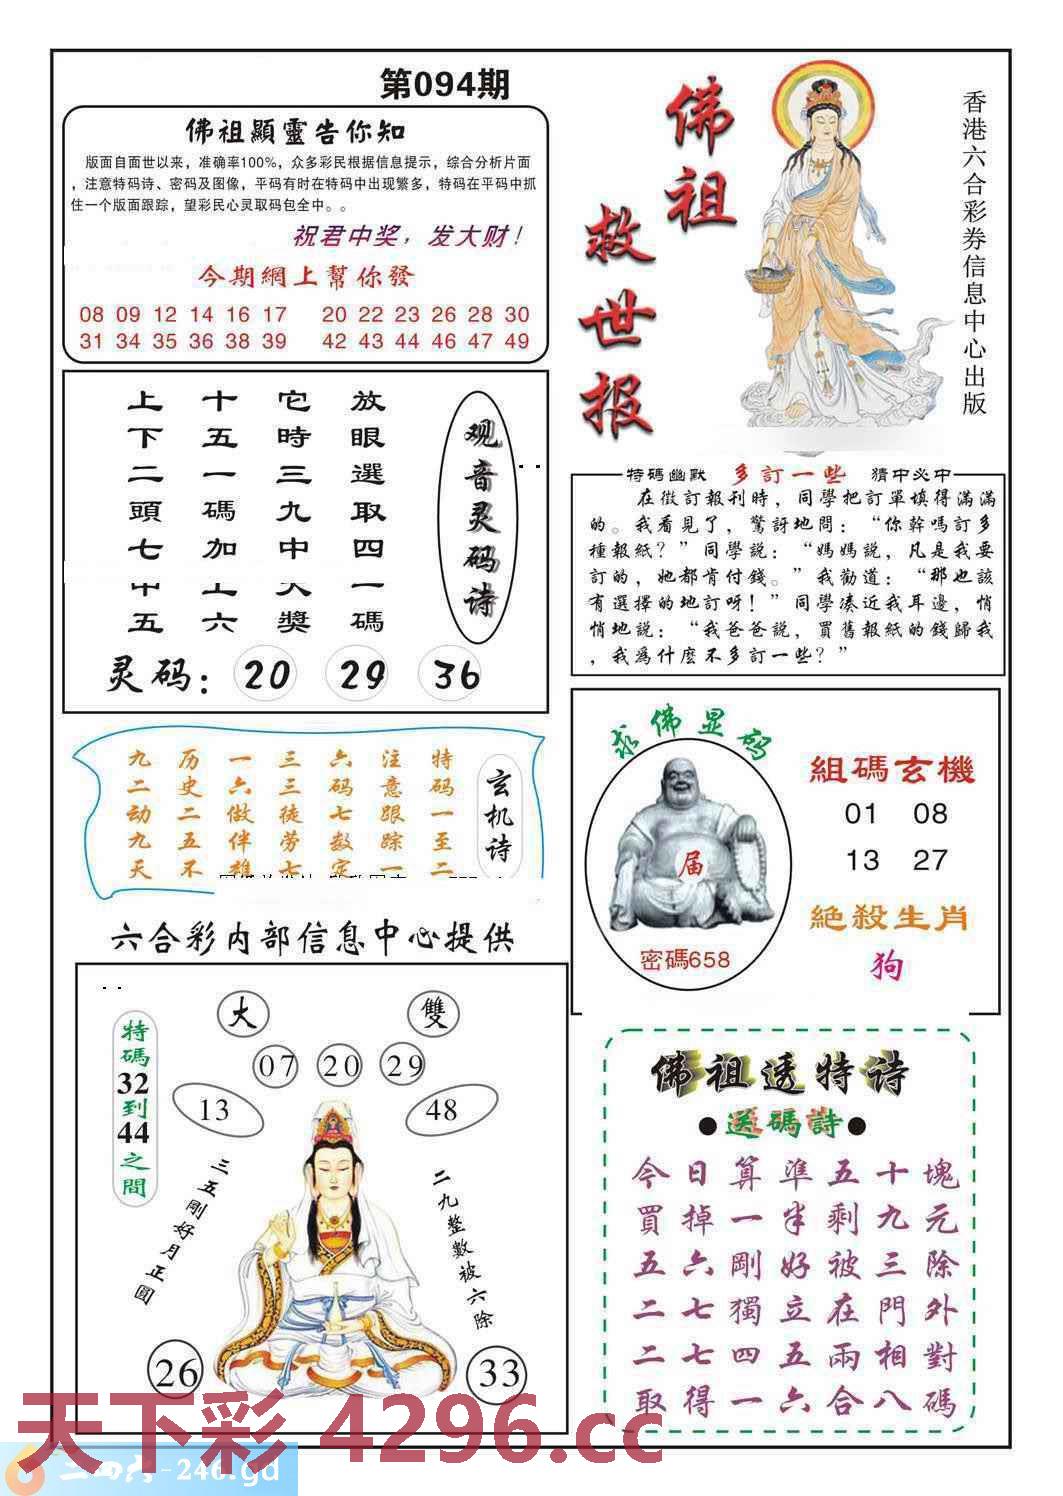 第094期
佛祖顯靈告你知
版面自面世以来，准确率100%，众多彩民根据信息提示，综合分析片面
，注意特码诗、密码及图像，平码有时在特码中出现繁多，特码在平码中抓
住一个版面跟踪，望彩民心灵取码包全中。。
祝君中奖，发大财！
今期網上幫你發
08 09 12 14 16 17 20 22 23 26 28 30
31 34 35 36 38 39 42 43 44 46 47 49
佛祖
救世报
香港六合彩券信息中心出版
观音灵码诗
放眼選取四一碼
它時三九中大獎
十五一碼加上六
上下二頭七中五
灵码：20 29 36
特碼幽默 多訂一些 猜中必中
在徵訂報刊時，同學把訂單填得滿滿
的。我看見了，驚訝地問：“你幹嗎訂多
種報紙？”同學説：“媽媽説，凡是我要
訂的，她都肯付錢。”我勸道：“那也該
有選擇的地訂呀！”同學凑近我耳邊，悄
悄地説：“我爸爸説，買舊報紙的錢歸我
，我爲什麽不多訂一些？”
玄机诗
特码一至二
注意跟踪一
六码七数定
三三徒劳七
一六做伴雄
历史二五不
九二动九天
求佛显码
届
密碼658
組碼玄機
01 08
13 27
絶殺生肖
狗
六合彩内部信息中心提供
大 雙
07 20 29
13 48
特碼32到44之間
三五剛好月正圓
二九整數被六除
26 33
佛祖透特诗
●送碼詩●
今日算準五十塊
買掉一半剩九元
五六剛好被三除
二七獨立在門外
二七四五兩相對
取得一六合八碼
天下彩 4296.cc
二四六-246.gd